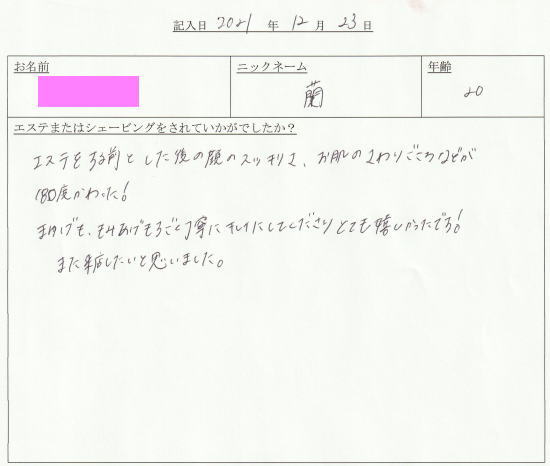 記入日 2021 年 12 月 23 日
お名前
ニックネーム
年齢
蘭
20
エステまたはシェービングをされていかがでしたか？
エステをする前とした後の顔のスッキリさ、お肌のさわりごこちなどが
180度かわった!
まゆげも、もみあげもすごく丁寧にキレイにしてくださりとても嬉しかったです!
また来店したいと思いました。